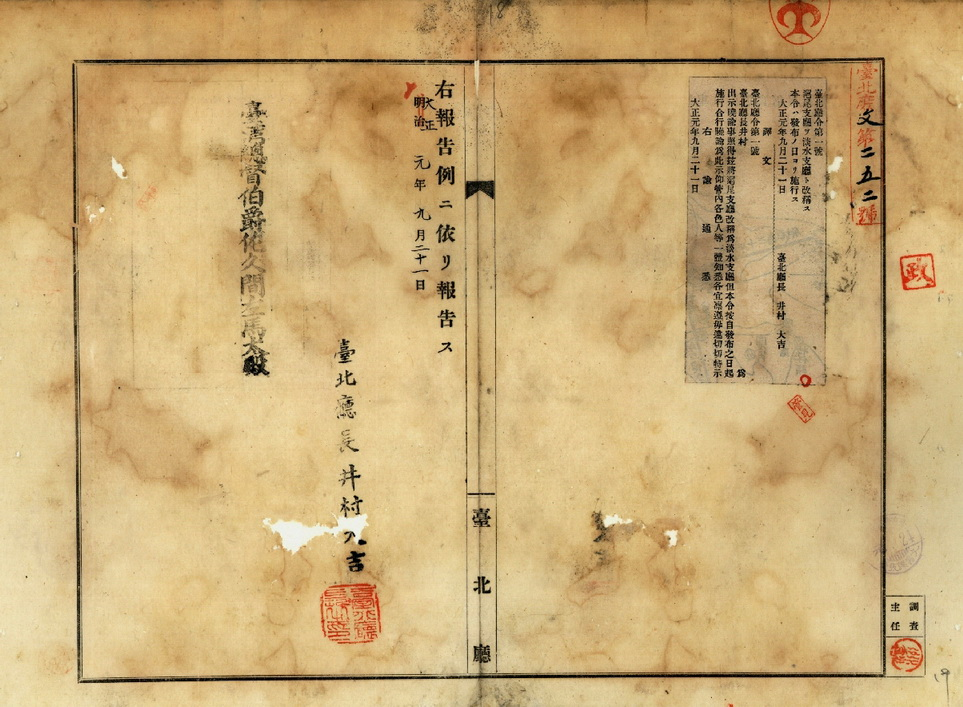 臺北廳文第二五二號
臺北廳令第一號
滬尾支廳ヲ淡水支廳ト改稱ス
本令ハ發布ノ日ヨリ施行ス
大正元年九月二十一日
臺北廳長 井村 大吉
譯文
臺北廳令第一號
臺北廳長井村 爲
出示曉諭事照得玆將滬尾支廳改稱爲淡水支廳但本令按自發布之日起
施行合行曉諭爲此示仰管內各色人等一體知悉各宜凛遵毋違切切特示
右諭通悉
大正元年九月二十一日
右報告例ニ依リ報告ス
大正
明治元年九月二十一日
臺北廳長井村大吉
臺灣總督伯爵佐久間左馬太殿
臺北廳
調查
主任